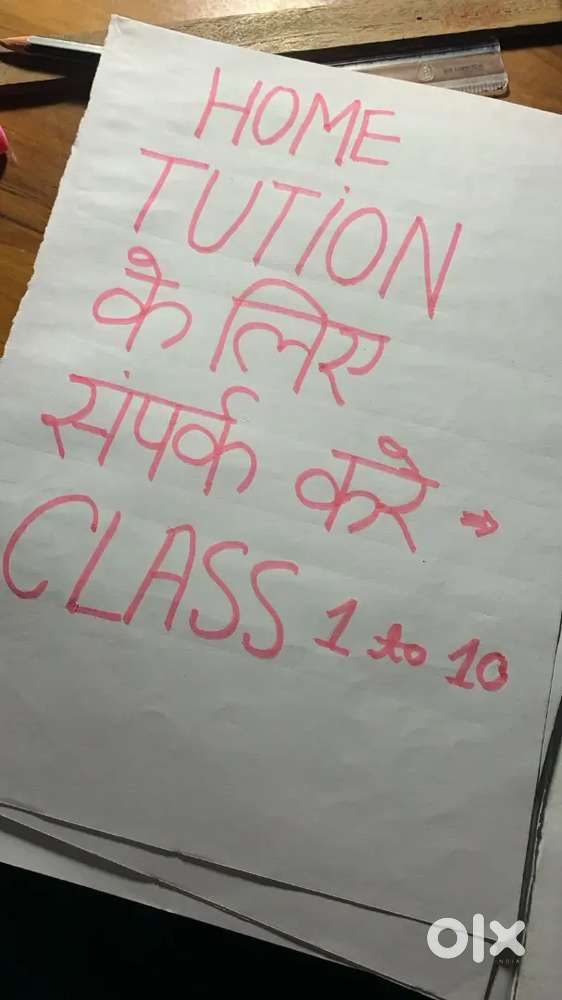 HOME
TUTION
के लिए
संपर्क करे →
CLASS 1 to 10
olx
INDIA